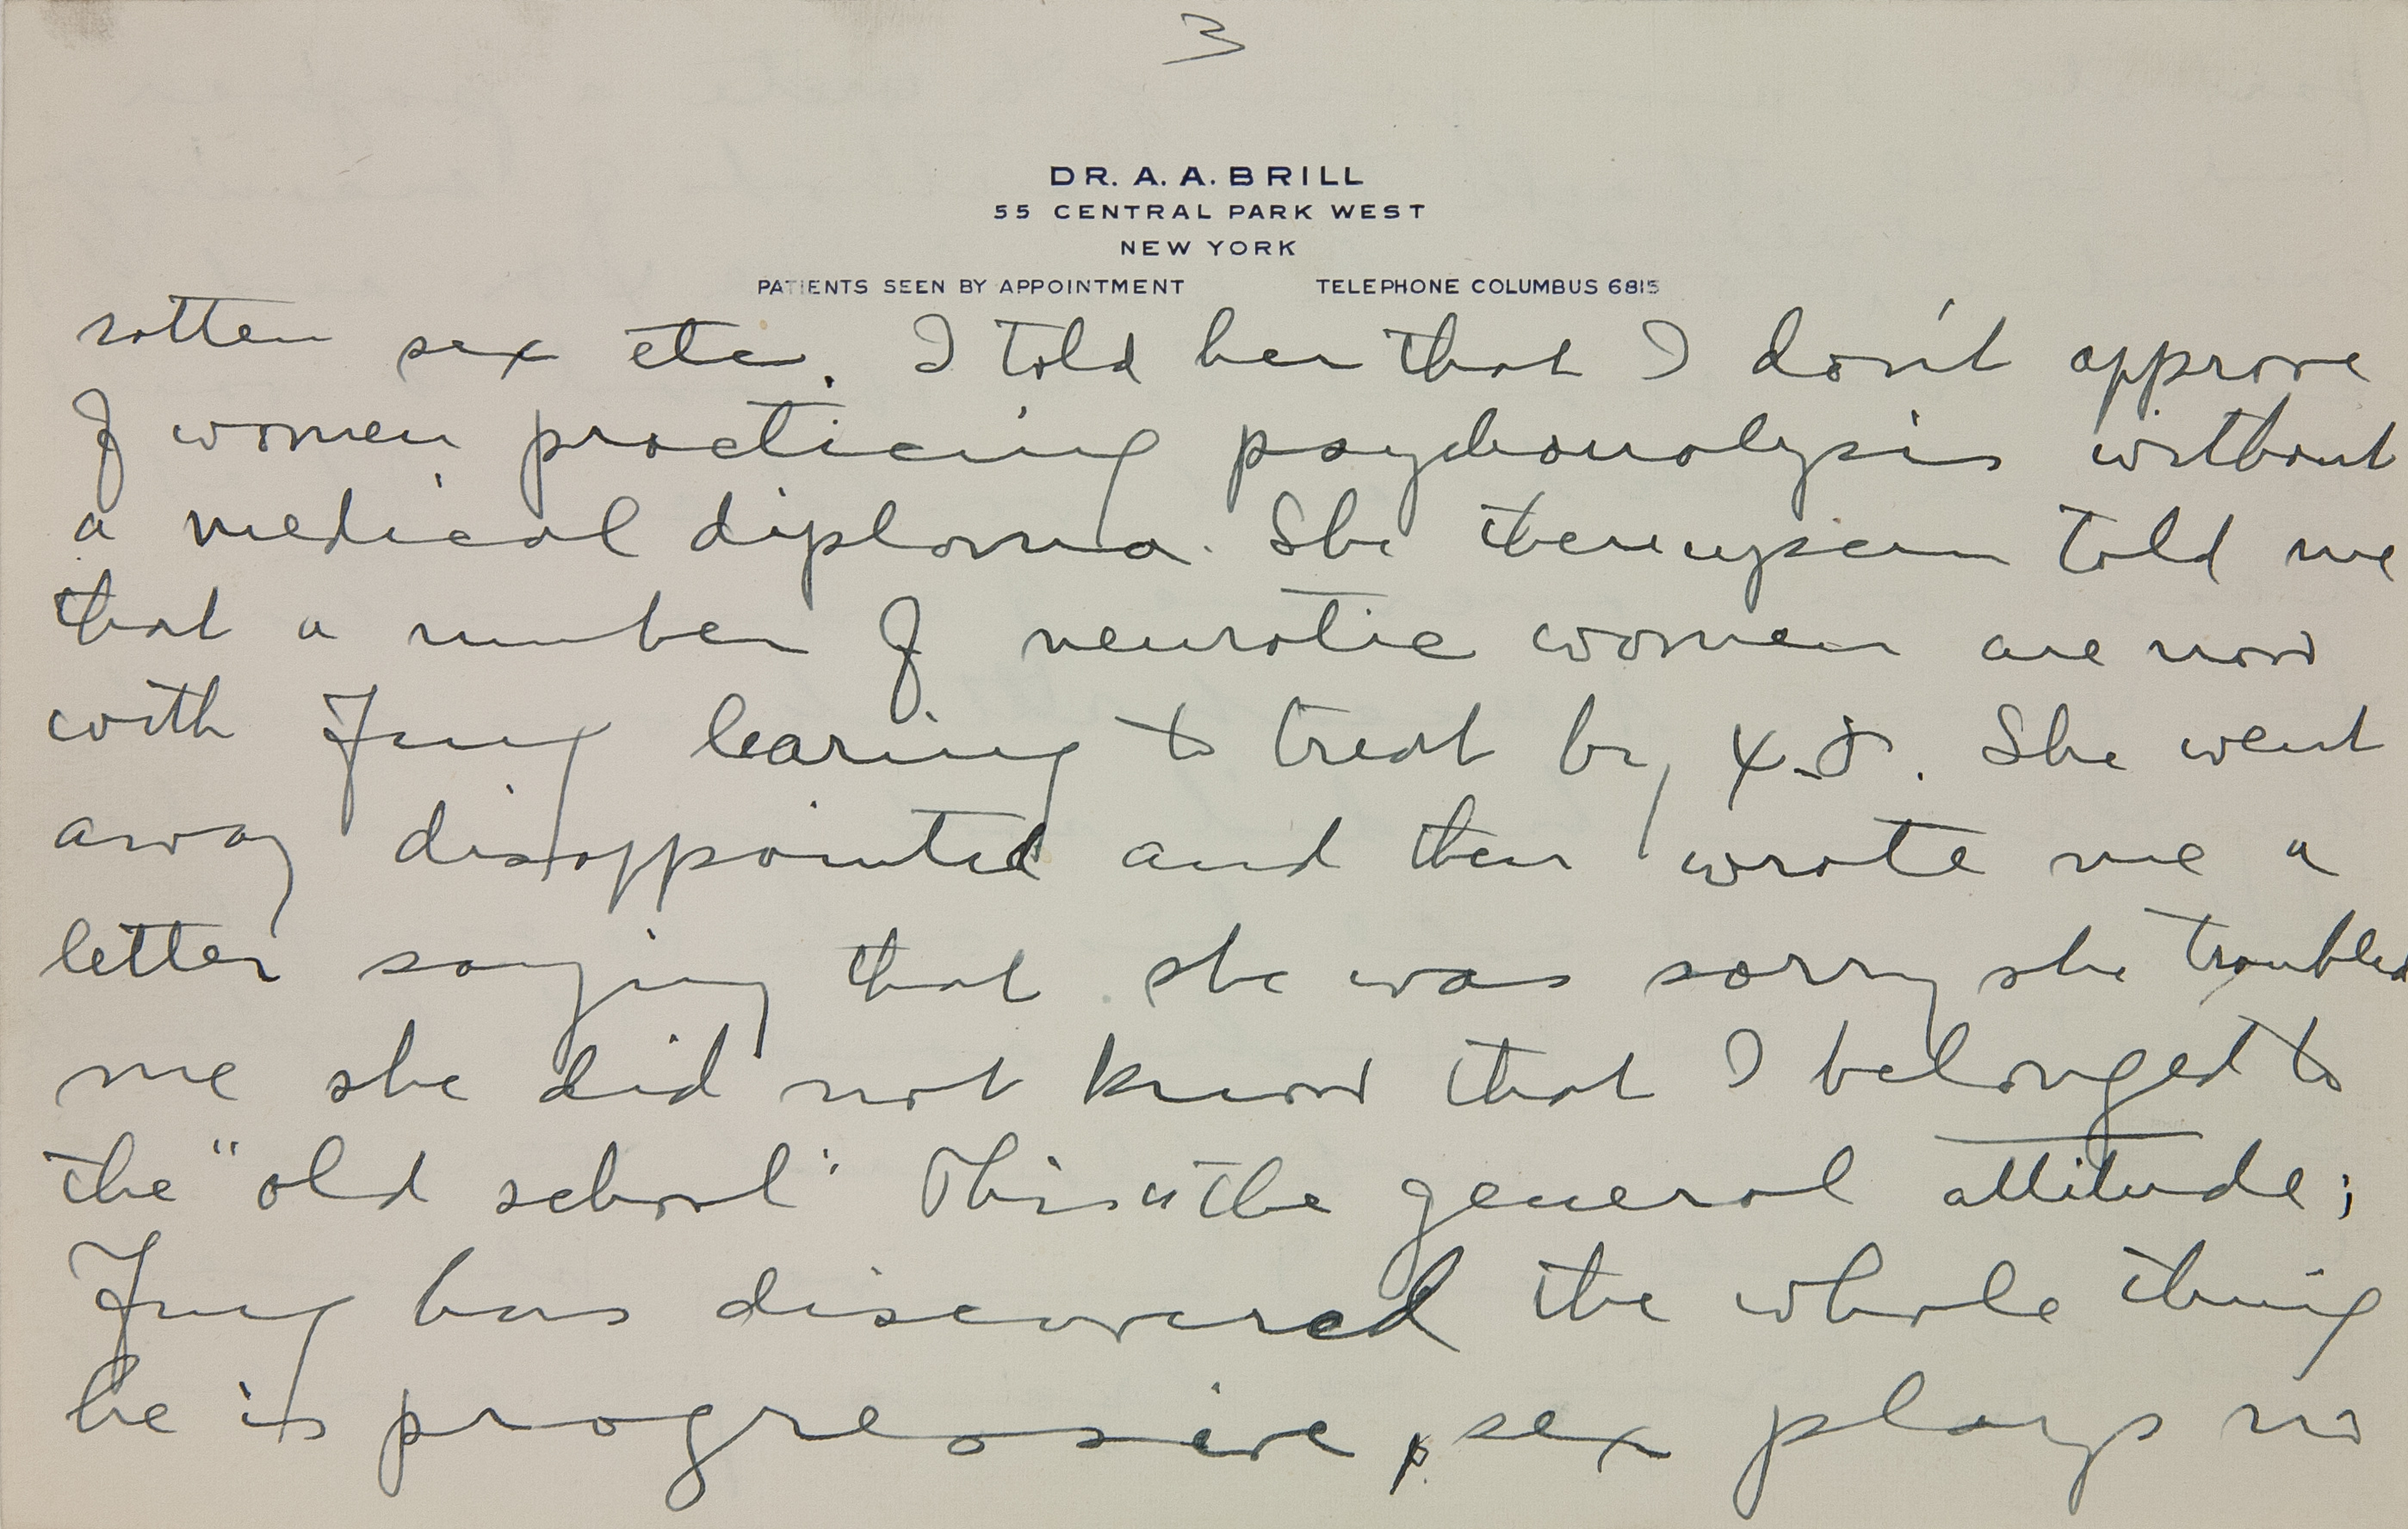 3
DR. A. A. BRILL
55 CENTRAL PARK WEST
NEW YORK
PATIENTS SEEN BY APPOINTMENT TELEPHONE COLUMBUS 6815
rotten sex etc. I told her that I don't approve
of women practicing psychoanalysis without
a medical diploma. She thereupon told me
that a number of neurotic women are now
with Jung learing to treat by ψ. She went
away disappointed and then wrote me a
letter saying that she was sorry she troubled
me she did not know that I belonged to
the "old school" This is the general attitude;
Jung has discovered the whole thing
he is progressive, sex plays no